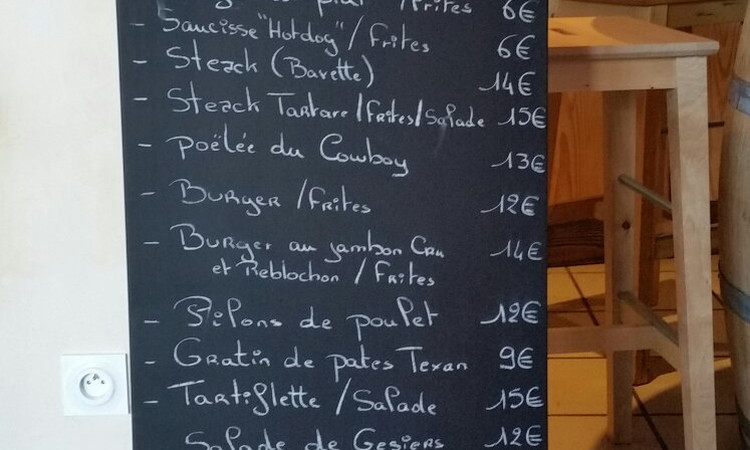 /frites 6€
- Saucisse "Hotdog" / frites 6€
- Steack (Bavette) 14€
- Steack Tartare / frites / Salade 15€
- Poëlée du Cowboy 13€
- Burger / frites 12€
- Burger au jambon Cru 14€
et Reblochon / frites
- Pilons de poulet 12€
- Gratin de pates Texan 9€
- Tartiflette / Salade 15€
Salade de Gesiers 12€